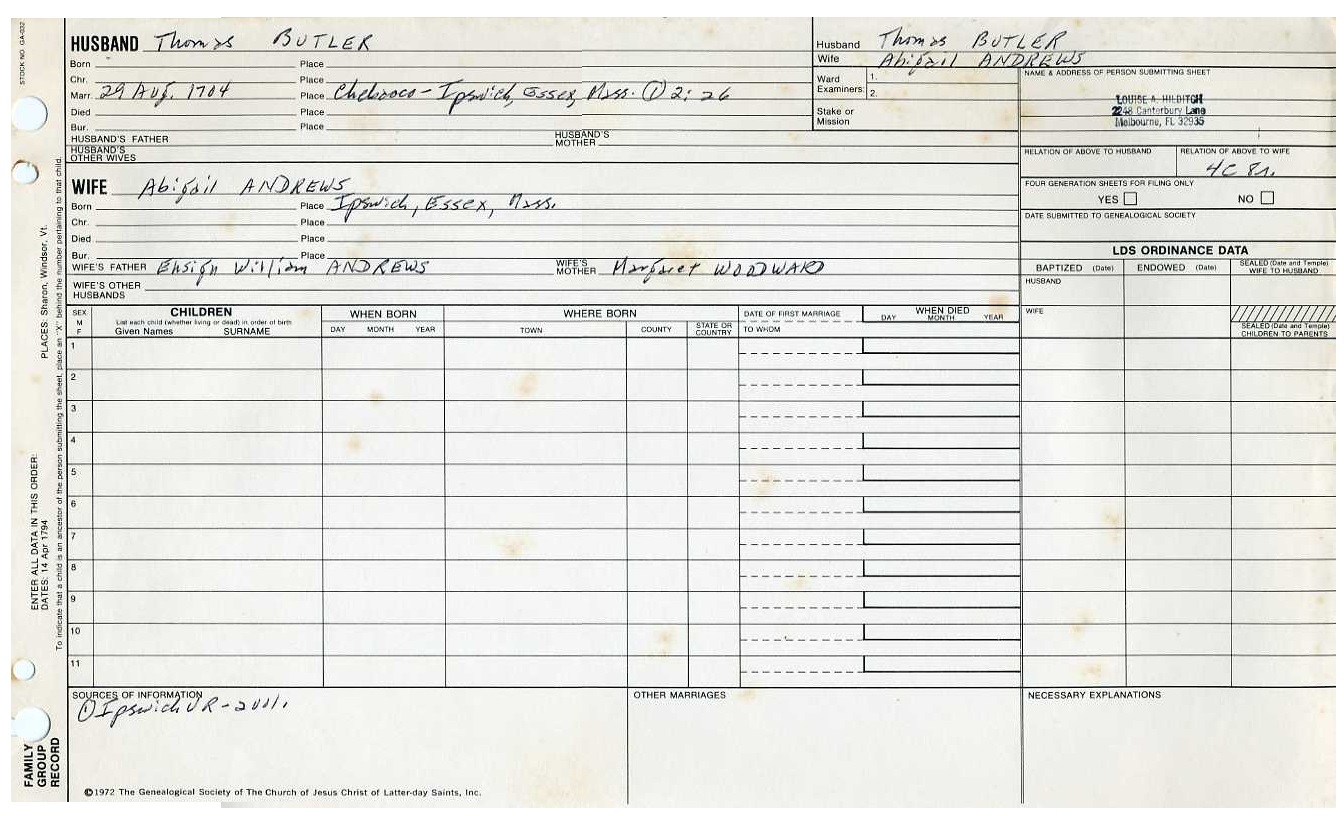 STOCK NO GA-032
HUSBAND Thomas BUTLER
Born Place
Chr. Place
Marr. 29 Aug. 1704 Place Chebacco - Ipswich, Essex, Mass. ① 2:26
Died Place
Bur. Place
HUSBAND'S FATHER HUSBAND'S MOTHER
HUSBAND'S OTHER WIVES
WIFE Abigail ANDREWS
Born Place Ipswich, Essex, Mass.
Chr. Place
Died Place
Bur. Place
WIFE'S FATHER Ensign William ANDREWS WIFE'S MOTHER Margaret WOODWARD
WIFE'S OTHER HUSBANDS
Husband Thomas BUTLER
Wife Abigail ANDREWS
Ward Examiners: 1.
2.
Stake or Mission
NAME & ADDRESS OF PERSON SUBMITTING SHEET
LOUISE A. HILDITCH
2248 Canterbury Lane
Melbourne, FL 32935
RELATION OF ABOVE TO HUSBAND RELATION OF ABOVE TO WIFE
4C 8r.
FOUR GENERATION SHEETS FOR FILING ONLY
YES NO
DATE SUBMITTED TO GENEALOGICAL SOCIETY
LDS ORDINANCE DATA
BAPTIZED (Date) ENDOWED (Date) SEALED (Date and Temple) WIFE TO HUSBAND
HUSBAND
WIFE
SEALED (Date and Temple) CHILDREN TO PARENTS
SEX M F
CHILDREN
List each child (whether living or dead) in order of birth
Given Names SURNAME
WHEN BORN
DAY MONTH YEAR
WHERE BORN
TOWN COUNTY STATE OR COUNTRY
DATE OF FIRST MARRIAGE
TO WHOM
WHEN DIED
DAY MONTH YEAR
1
2
3
4
5
6
7
8
9
10
11
SOURCES OF INFORMATION
① Ipswich VR - 2 vol.
OTHER MARRIAGES
NECESSARY EXPLANATIONS
©1972 The Genealogical Society of The Church of Jesus Christ of Latter-day Saints, Inc.
FAMILY GROUP RECORD
ENTER ALL DATA IN THIS ORDER:
DATES: 14 Apr 1794 PLACES: Sharon, Windsor, Vt.
To indicate that a child is an ancestor of the person submitting the sheet, place an "X" behind the number pertaining to that child.